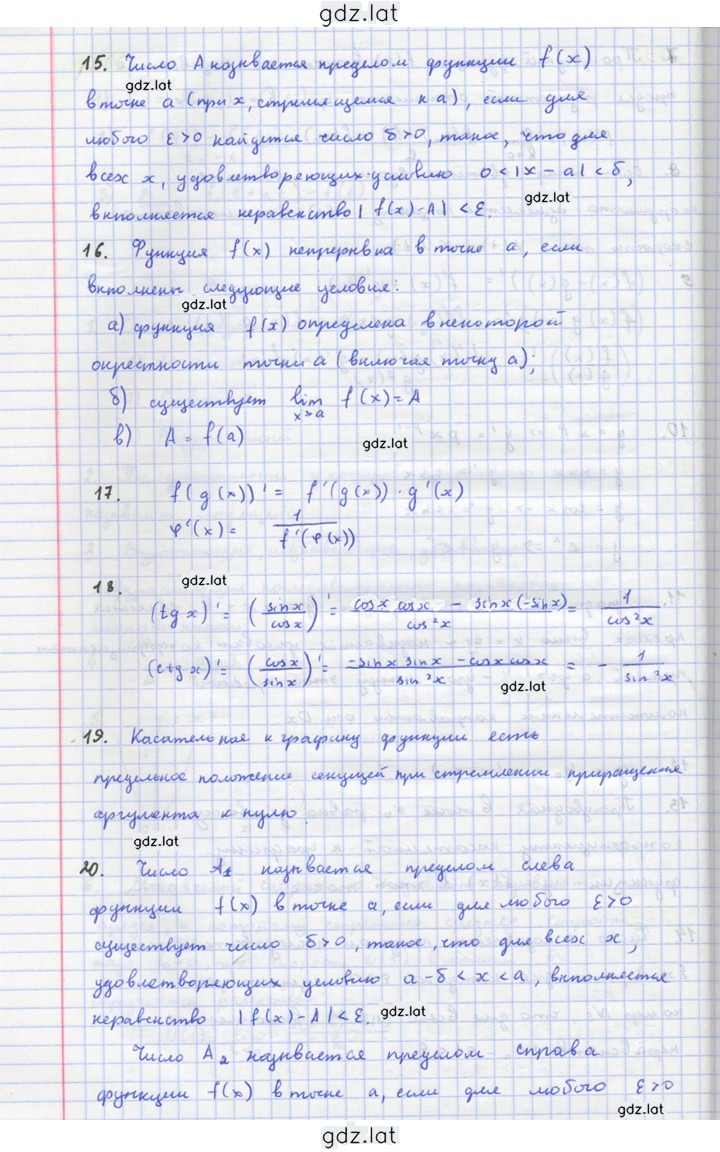 gdz.lat
15. Число A называется пределом функции f(x)
gdz.lat
в точке a (при x, стремящемся к a), если для
любого ε>0 найдется число δ>0, такое, что для
всех x, удовлетворяющих условию 0<|x-a|<δ,
gdz.lat
выполняется неравенство |f(x)-A|<ε.
16. Функция f(x) непрерывна в точке a, если
выполнены следующие условия:
gdz.lat
а) функция f(x) определена в некоторой
окрестности точки a (включая точку a);
б) существует lim x→a f(x)=A
в) A = f(a)
gdz.lat
17. f(g(x))' = f'(g(x))·g'(x)
φ'(x) = 1/f'(φ(x))
18. gdz.lat
(tg x)' = (sinx/cosx)' = (cosx cosx - sinx(-sinx))/cos²x = 1/cos²x
(ctg x)' = (cosx/sinx)' = (-sinx sinx - cosx cosx)/sin²x = -1/sin²x
gdz.lat
19. Касательное к графику функции есть
предельное положение секущей при стремлении приращения
аргумента к нулю.
gdz.lat
20. Число A₁ называется пределом слева
функции f(x) в точке a, если для любого ε>0
существует число δ>0, такое, что для всех x,
удовлетворяющих условию a-δ<x<a, выполняется
неравенство |f(x)-A|<ε.
gdz.lat
Число A₂ называется пределом справа
функции f(x) в точке a, если для любого ε>0
gdz.lat
gdz.lat